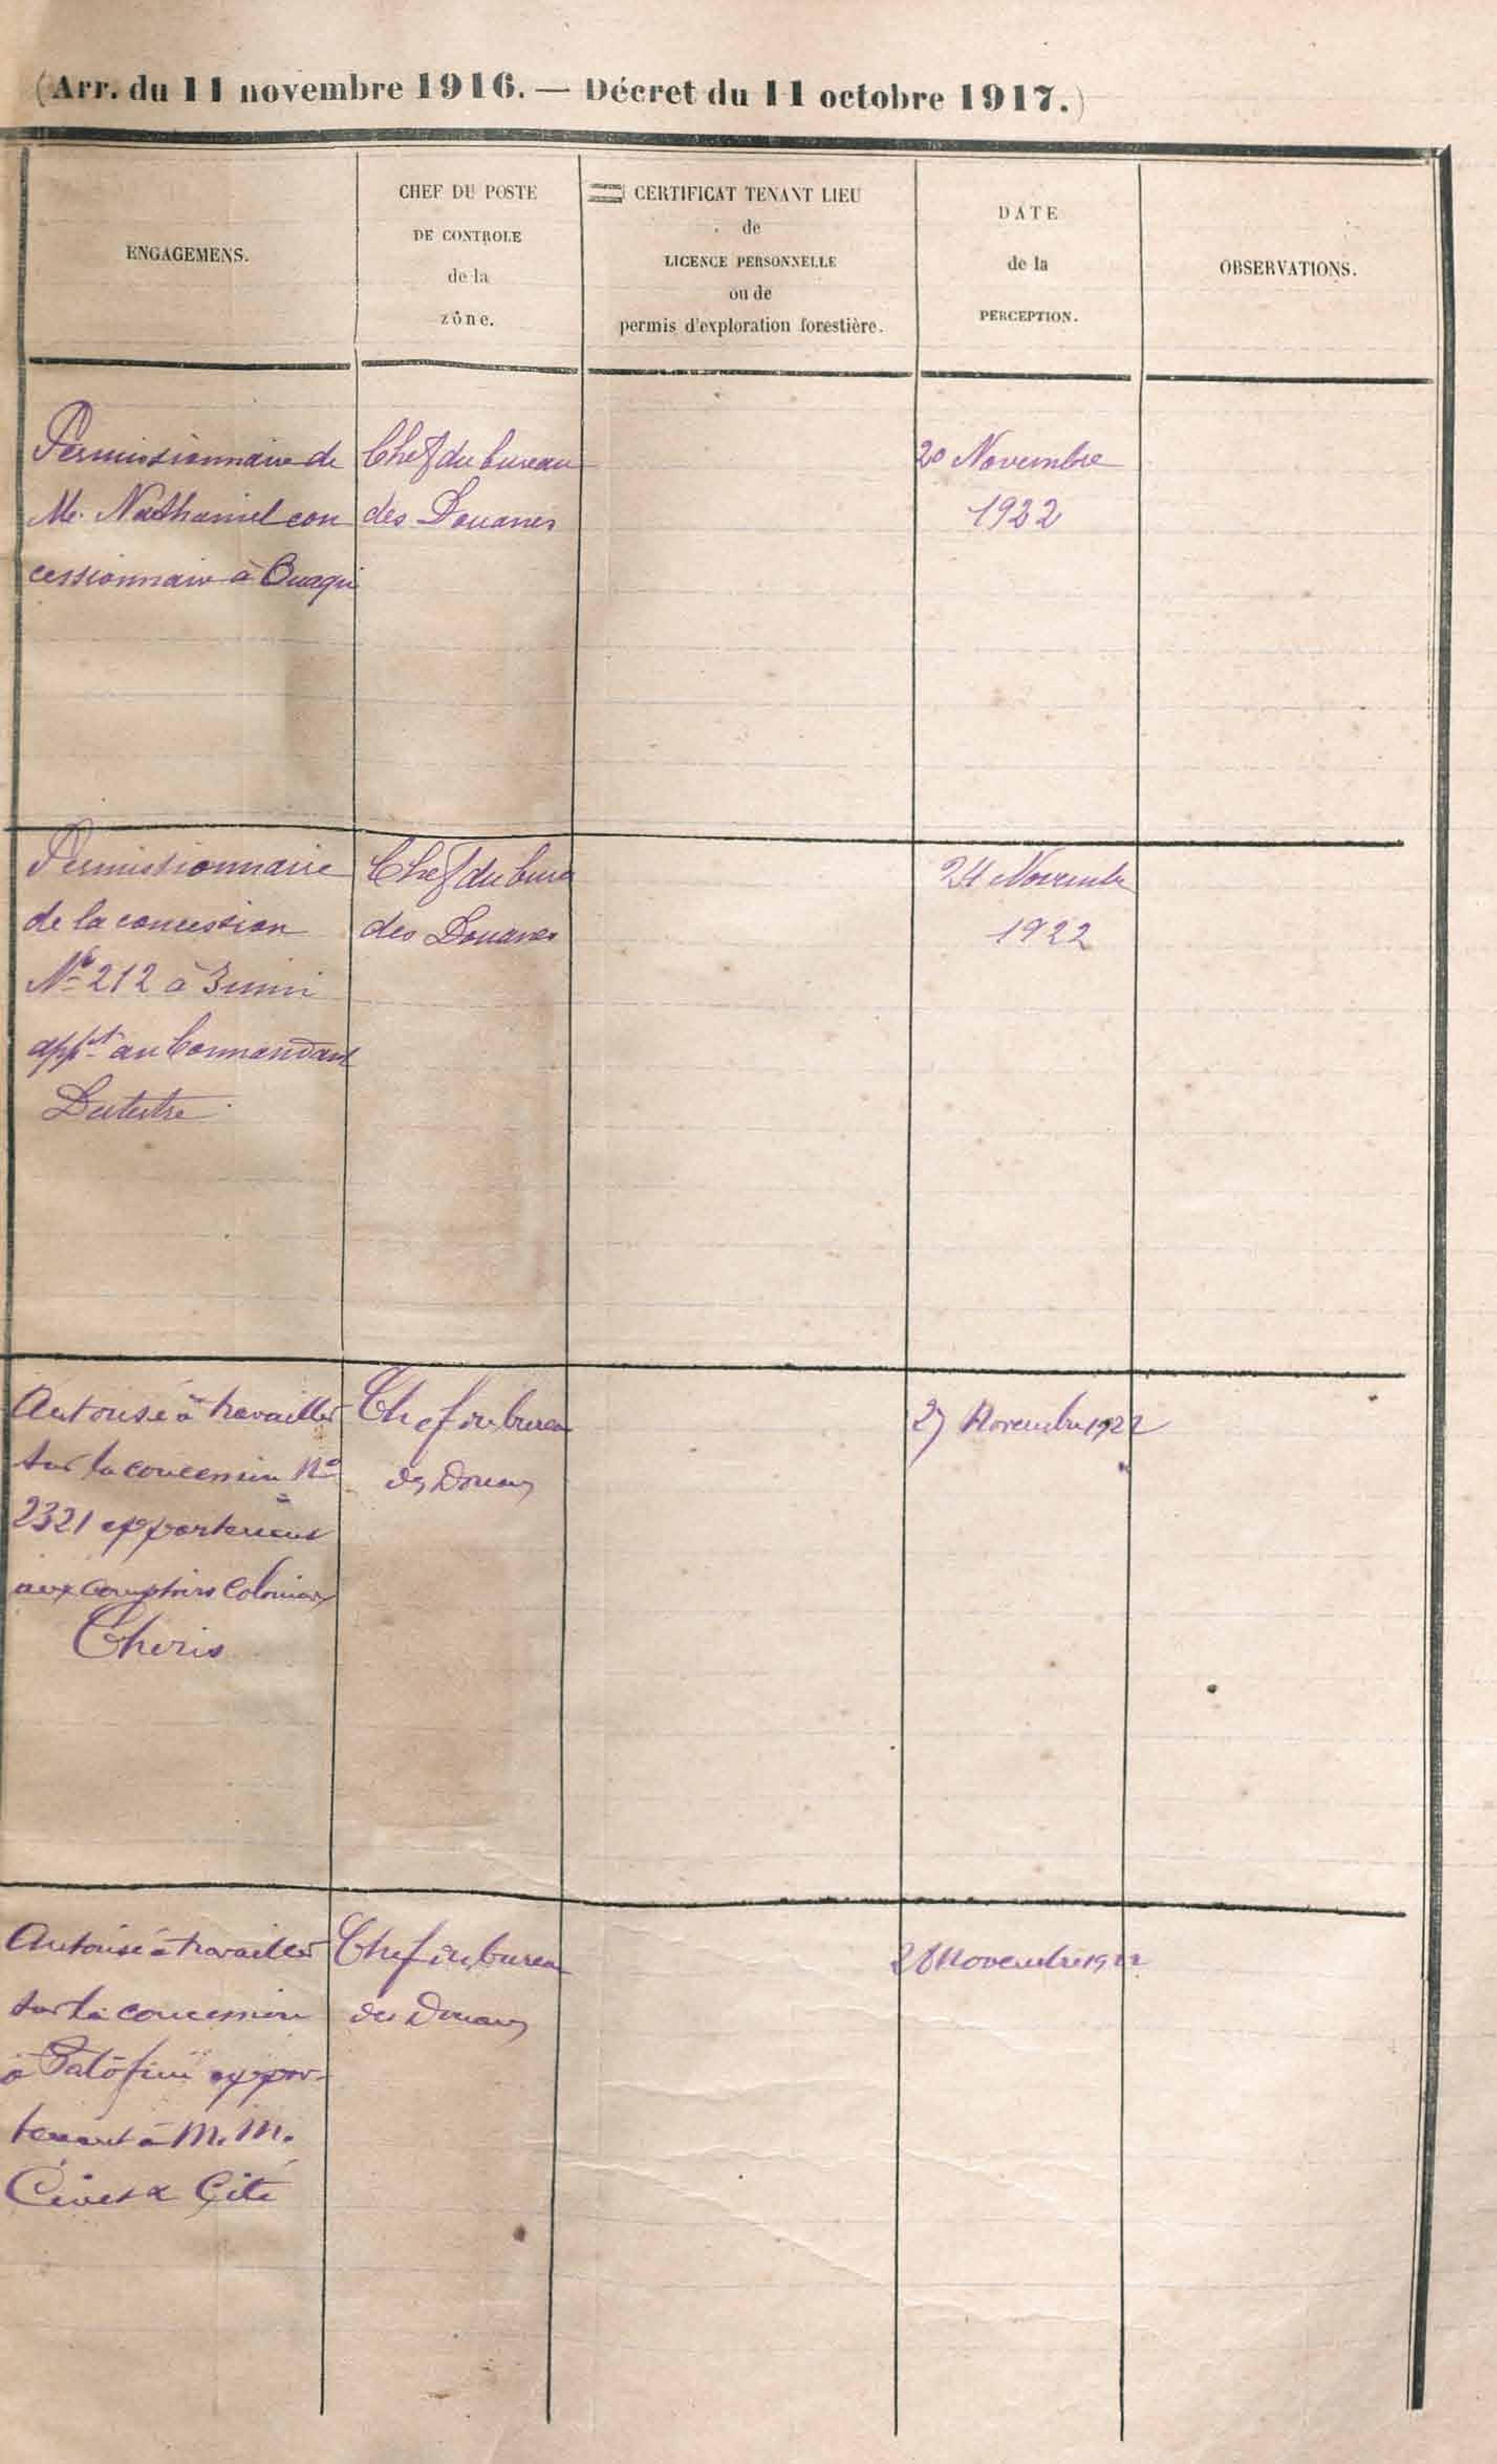 (Arr. du 11 novembre 1916. — Décret du 11 octobre 1917.)
ENGAGEMENS.
CHEF DU POSTE
DE CONTROLE
de la
zône.
CERTIFICAT TENANT LIEU
de
LICENCE PERSONNELLE
ou de
permis d'exploration forestière.
DATE
de la
PERCEPTION.
OBSERVATIONS.
Permissionnaire de
Mr. Nathaniel con
cessionnaire à Ouaqui
Chef du bureau
des Douanes
20 Novembre
1922
Permissionnaire
de la concession
No 212 à
appt au Commandant
Dutertre
Chef du bureau
des Douanes
24 Novembre
1922
Autorisé à travailler
sur la concession No
2321 appartenant
aux Comptoirs Coloniaux
Cheris
Chef du bureau
des Douanes
27 Novembre 1922
Autorisé à travailler
sur la concession
à appar-
tenant à M. M.
Civet & Cité
Chef du bureau
des Douanes
28 Novembre 1922